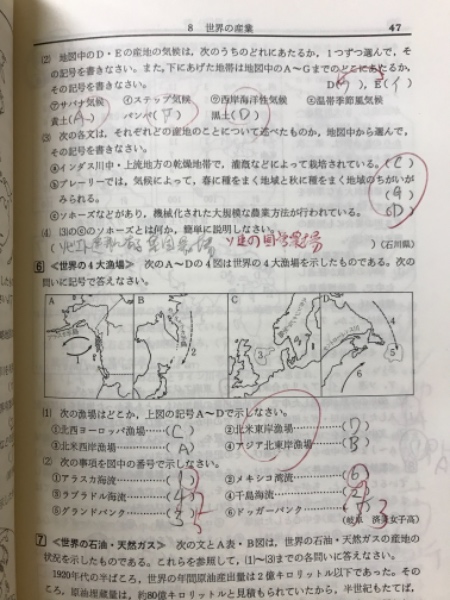 8 世界の産業 47
(2) 地図中のD・Eの産地の気候は,次のうちのどれにあたるか,1つずつ選んで,そ
の記号を書きなさい。また,下にあげた地帯は地図中のA〜Gまでのどこにあたるか,
その記号を書きなさい。 D( ウ ), E( イ )
㋐サバナ気候 ㋑ステップ気候 ㋒西岸海洋性気候 ㋓温帯季節風気候
黄土( A ) パンパ( F ) 黒土( D )
(3) 次の各文は,それぞれどの産地のことについて述べたものか,地図中から選んで,
その記号を書きなさい。
ⓐインダス川中・上流地方の乾燥地帯で,灌漑などによって栽培されている。( C )
ⓑプレーリーでは,気候によって,春に種をまく地域と秋に種をまく地域のちがいが
みられる。 ( G )
ⓒソホーズなどがあり,機械化された大規模な農業方法が行われている。 ( D )
(4) (3)のⓒのソホーズとは何か,簡単に説明しなさい。
ソ連の国営農場
) (石川県)
6 ≪世界の4大漁場≫ 次のA〜Dの4図は世界の4大漁場を示したものである。次の
問いに記号で答えなさい。
A B C D
1 2 3 4 5 6
(1) 次の漁場はどこか,上図の記号A〜Dで示しなさい。
①北西ヨーロッパ漁場………( C ) ②北米東岸漁場…………( D )
③北米西岸漁場……………( A ) ④アジア北東岸漁場………( B )
(2) 次の事項を図中の番号で示しなさい。
①アラスカ海流……………( 1 ) ②メキシコ湾流……………( 6 )
③ラブラドル海流…………( 4 ) ④千島海流………………( 2 )
⑤グランドバンク…………( 5 ) ⑥ドッガーバンク…………( 3
(岐阜 済美女子高)
7 ≪世界の石油・天然ガス≫ 次の文とA表・B図は,世界の石油・天然ガスの産地の
状況を示したものである。これらを参照して,(1)〜(3)までの各問いに答えなさい。
1920年代の半ばころ,世界の年間原油産出量は2億キロリットル以下であった。そのこ
ろ,原油埋蔵量は,約80億キロリットルと見積もられていたから,半世紀もたてば,